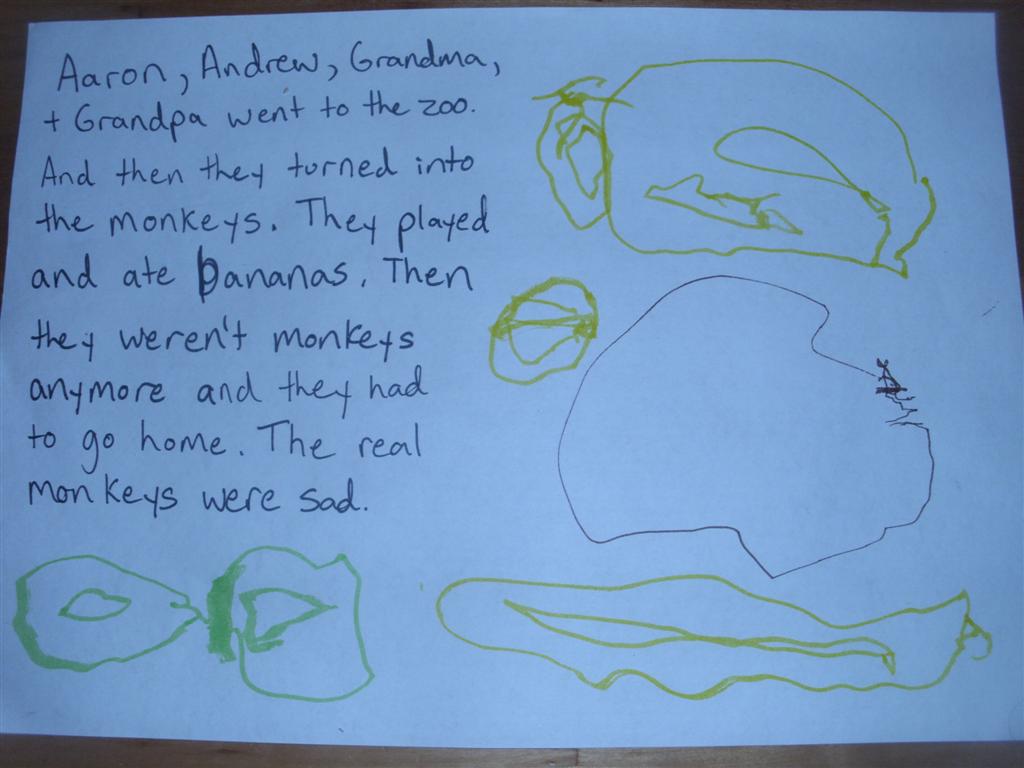 Aaron, Andrew, Grandma,
+ Grandpa went to the zoo.
And then they turned into
the monkeys. They played
and ate bananas. Then
they weren't monkeys
anymore and they had
to go home. The real
monkeys were sad.